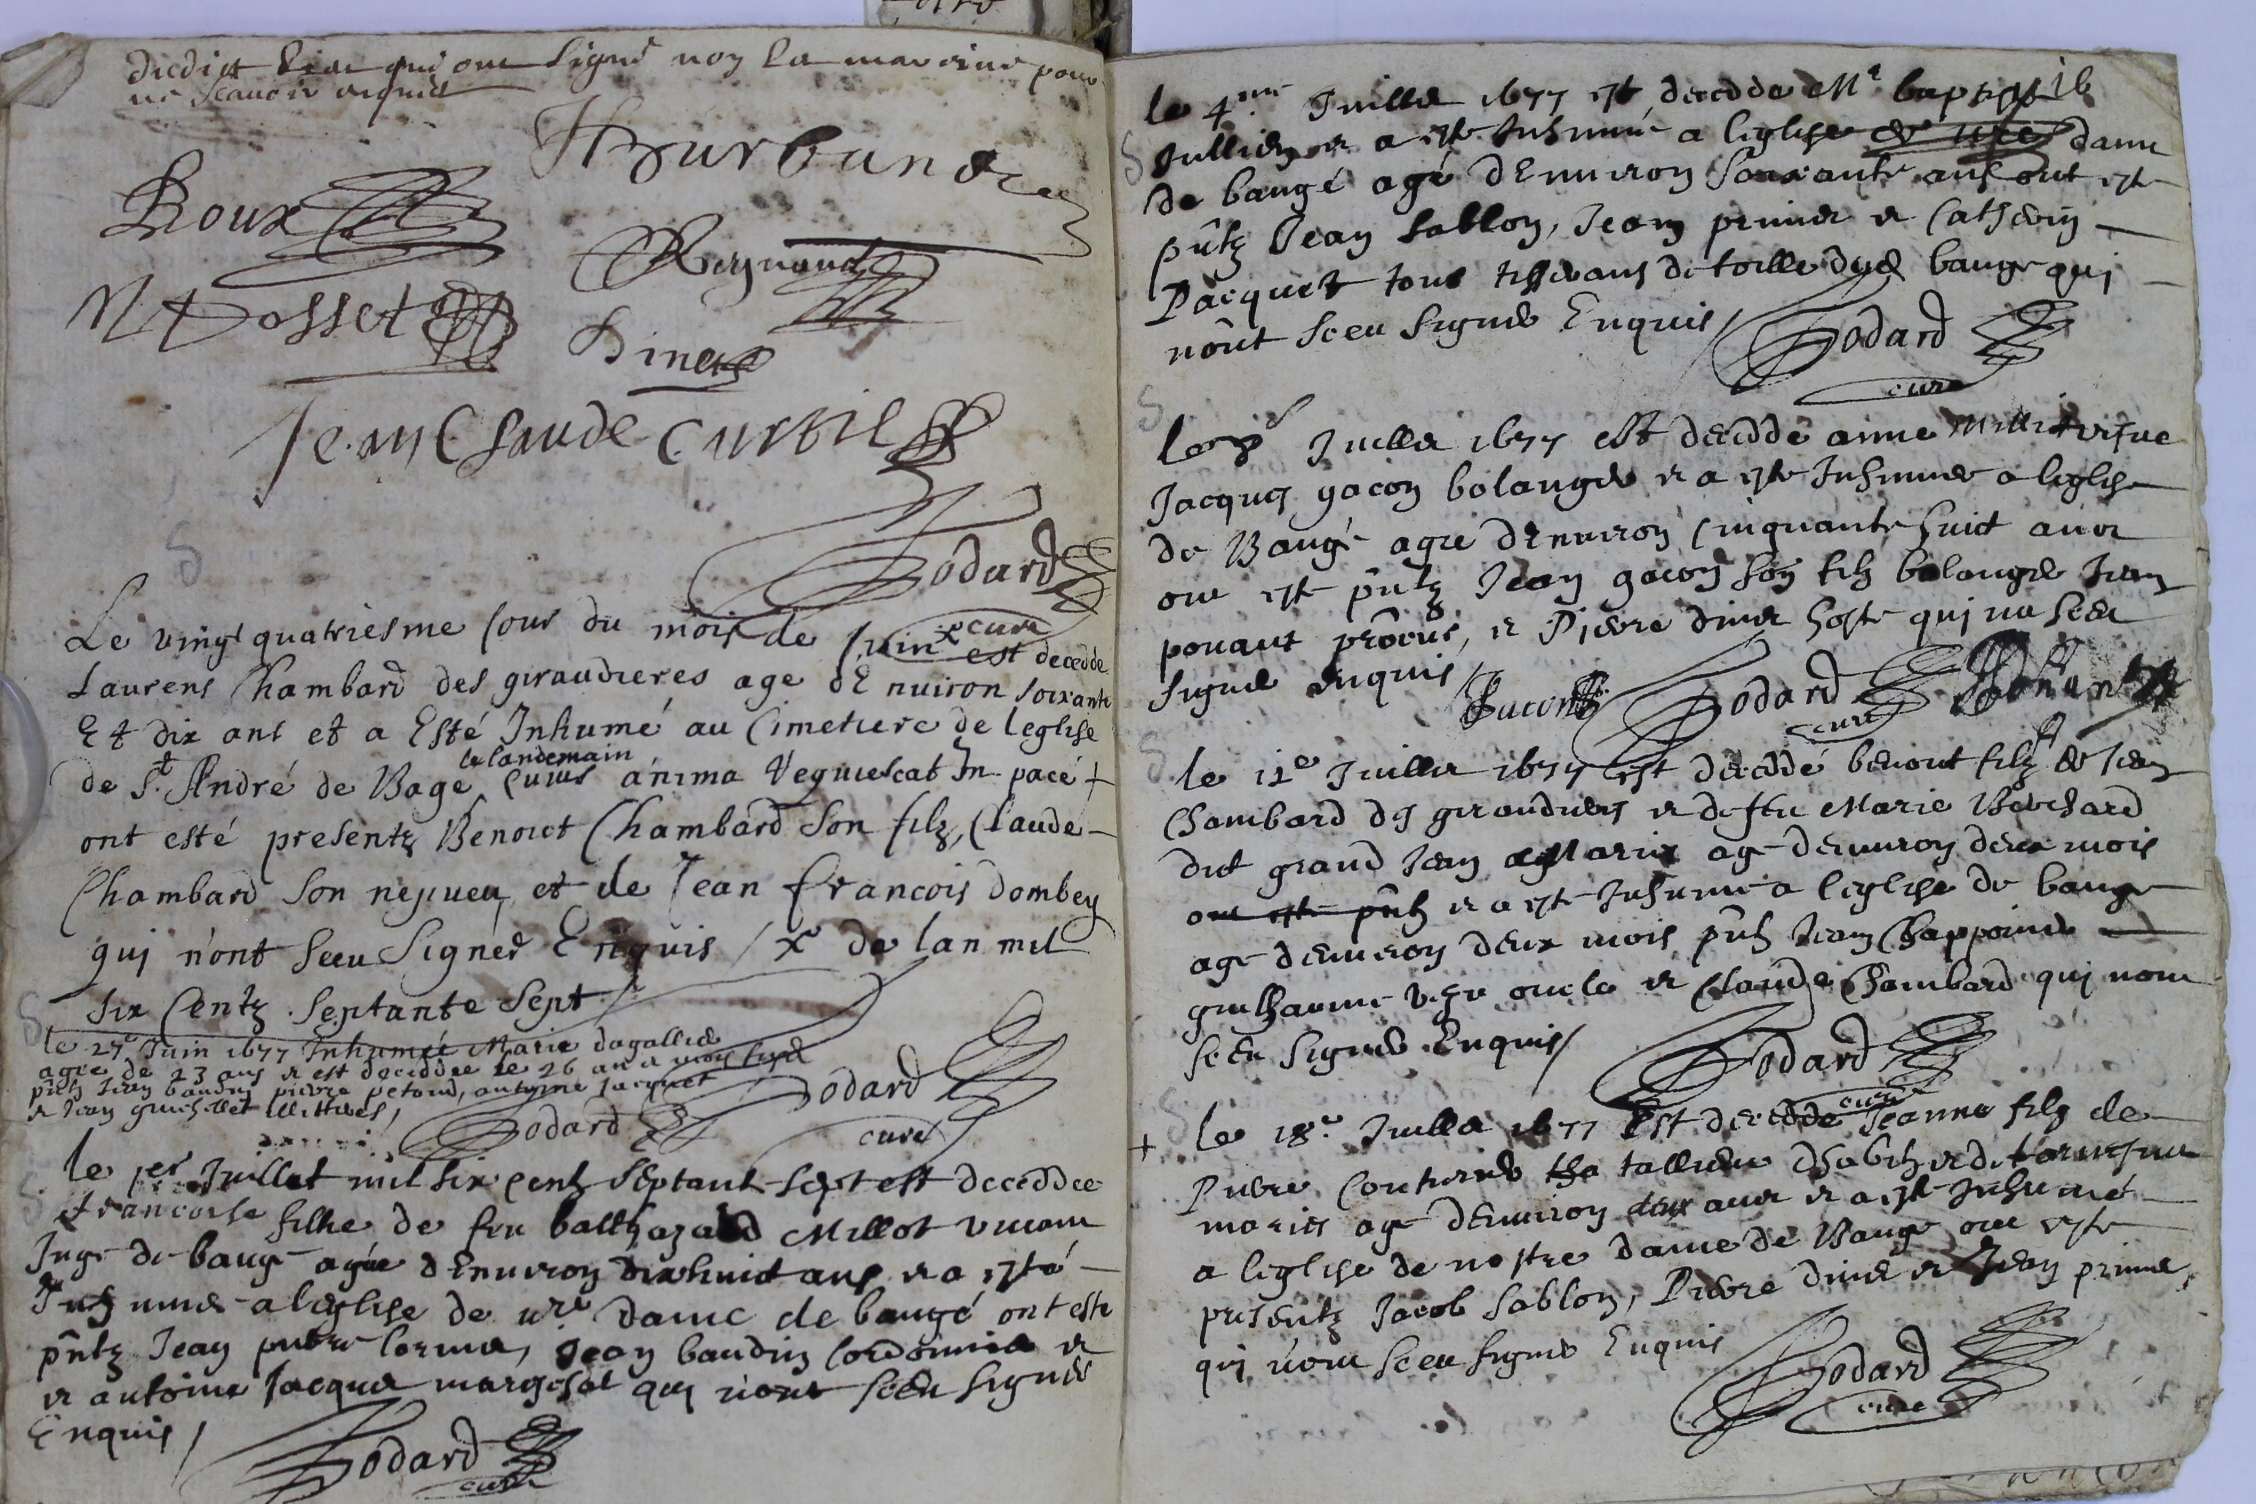 dudict lieu qui ont signé non la marraine pour
ne scavoir enquise
Roux
Reynaud
Dosset
Dinet
Jean Claude Curtil
Godard
curé
Le vingt quatriesme Jour du mois de Juin x est decedde
Laurens Chambard des giraudieres age dEnuiron soixante
Et dix ans et a Esté Inhumé au Cimetiere de leglise
le landemain
de St André de Bage Cuius anima Requiescat In pace +
ont esté presentz Benoict Chambard son filz, Claude
Chambard son nepueu, et de Jean francois dombey
qui n'ont sceu Signer Enquis / x de lan mil
six Centz septante sept /.
le 27e Juin 1677 Inhumée Marie dagallier
agee de 23 ans et est deceddee le 26 an a mois susd
pntz Jean baudin pierre petoud, antoyne Jacquet
et Jean guichellet illitteres /
Godard
Godard
curé
le 1er Juillet mil six centz septant sept est deceddee
francoise fille de feu balthazard Millot viuant
Juge de baugé agée dEnuiron dixhuict ans et a esté
Inhumée a leglise de nre dame de baugé ont esté
pntz Jean pierre lorme, Jean baudin cordonnier et
et antoine Jacquet qui n'ont sceu signer
Enquis /
Godard
curé
16
le 4me Juillet 1677 est decedde Mr baptiste
Jullien et a esté Inhumé a leglise de nre dame
de baugé agé dEnuiron soixante ans ont esté
pntz Jean Sablon, Jean prunier et Catherin
Pacquet tous tisserans de toille dud baugé qui
n'ont sceu signer Enquis /
Godard
curé
le Juillet 1677 est decedde anne vefue
Jacques gacon bolanger et a esté Inhumée a leglise
de Baugé agee dEnuiron Cinquante huict ans
ont esté pntz Jean gacon son filz bolanger Jean
ponant et Pierre dinet hoste qui na sceu
signer enquis /
Gacon
Godard
curé
Ponant
le 12e Juillet 1677 est deceddé benoit filz de Jean
Chambard des giraudieres et defeu Marie Bouchard
dit grand Jean age denuiron deux mois
ont esté pntz et a esté Inhumé a leglise de baugé
age denuiron deux mois pntz Jean Chappoine
guilhaume oncle et Claude Chambard qui nont
sceu signer Enquis /
Godard
curé
+ le 18e Juillet 1677 Est decedde Jeanne filz de
Pierre Couturier tallieur dhabitz et de
mariés age denuiron deux ans et a esté Inhumé
a leglise de nostre dame de Baugé ont esté
presentz Jacob Sablon, Pierre dinet et Jean prunier
qui n'ont sceu signer Enquis
Godard
curé